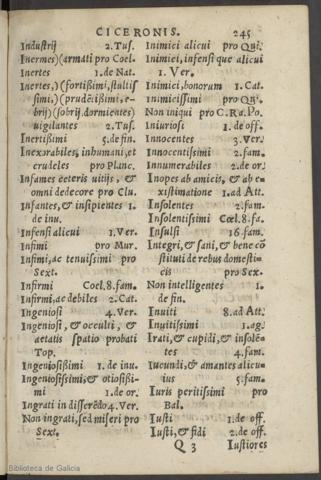 CICERONIS. 245
Industrij 2.Tus.
Inermes)(armati pro Coel.
Inertes 1.de Nat.
Inertes,)(fortißimi, stultis
simi,)(prudẽtißimi, e-
brij)(sobrij.dormientes)
uigilantes 2.Tus.
Inertißimi 5.de fin.
Inexorabiles, inhumani, et
crudeles pro Planc.
Infames ceteris uitijs, &
omni dedecore pro Clu.
Infantes, & insipientes 1.
de inu.
Infensi alicui 1.Ver.
Infimi pro Mur.
Infimi, ac tenuissimi pro
Sext.
Infirmi Coel.8.fam.
Infirmi, ac debiles 2.Cat.
Ingeniosi 4.Ver.
Ingeniosi, & occulti, &
aetatis spatio probati
Top.
Ingeniosißimi 1.de inu.
Ingeniosissimi, & otiosißi-
mi 1.de or.
Ingrati in differẽdo 4.Ver.
Non ingrati, sed miseri pro
Sext.
Inimici alicui pro Qui.
Inimici, infensique alicui
1. Ver.
Inimici, bonorum 1. Cat.
Inimicissimi pro Qui.
Non iniqui pro C.Ra.Po.
Iniuriosi 1.de off.
Innocentes 3.Ver.
Innocentissimi 2.fam.
Innumerabiles 2.de or.
Inopes ab amicis, & ab e-
xistimatione 1.ad Att.
Insolentes 2.fam.
Insolentissimi Cœl.8.fa.
Insulsi 16.fam.
Integri, & sani, & bene cõ
stituti de rebus domesti-
cis pro Sex.
Non intelligentes 1.
de fin.
Inuiti 8.ad Att.
Inuitissimi 1.ag.
Irati, & cupidi, & insolẽ-
tes 4.fam.
Iucundi, & amantes alicu-
ius 5.fam.
Iuris peritissimi pro
Bal.
Iusti 1.de off.
Iusti, & fidi 2.de off.
Q 3 Iustiores
Biblioteca de Galicia